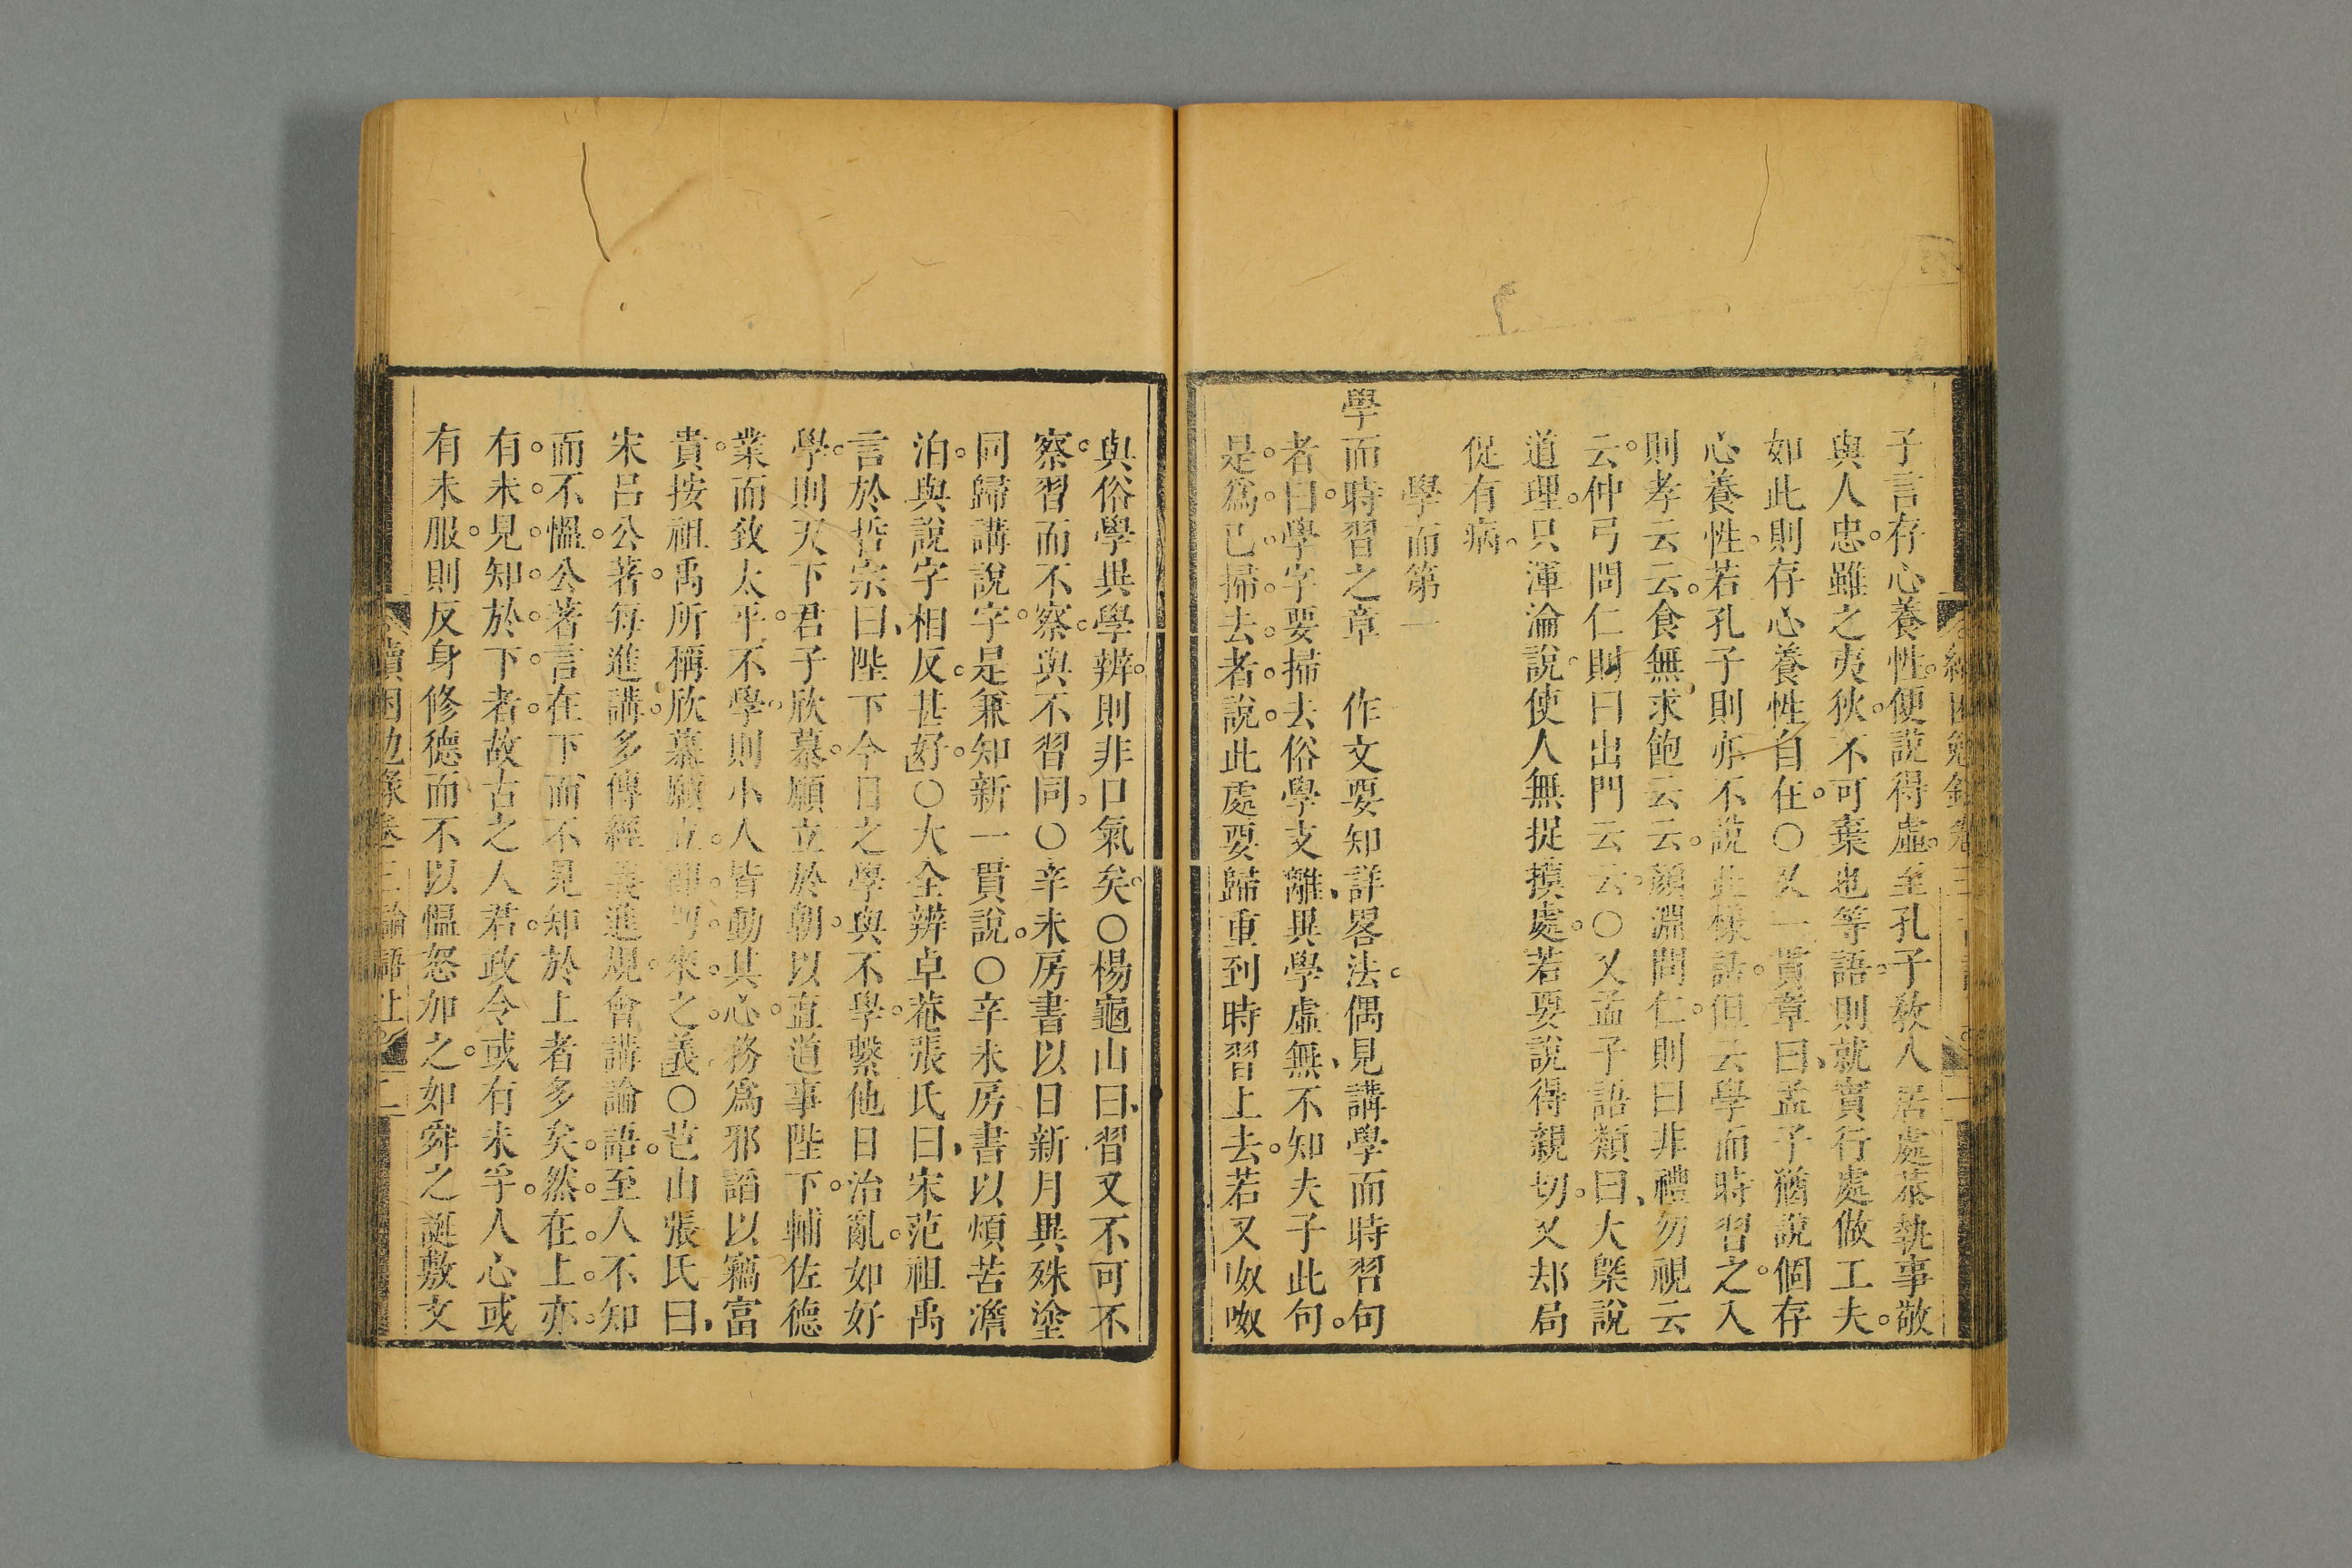 子言存心養性便說得虛至孔子敎人居處恭執事敬
與人忠雖之夷狄不可棄也等語則就實行處做工夫
如此則存心養性自在〇又一貫章曰孟子猶說個存
心養性若孔子則亦不說此樣話但云學而時習之入
則孝云云食無求飽云云顏淵問仁則曰非禮勿視云
云仲弓問仁則曰出門云云〇又孟子語類曰大槩說
道理只渾淪說使人無捉摸處若要說得親切又却局
促有病
學而第一
學而時習之章　作文要知詳畧法偶見講學而時習句
者曰學字要掃去俗學支離異學虛無不知夫子此句
是爲已掃去者說此處要歸重到時習上去若又呶呶
與俗學異學辨則非口氣矣〇楊龜山曰習又不可不
察習而不察與不習同〇辛未房書以日新月異殊塗
同歸講說字是兼知新一貫說〇辛未房書以煩苦澹
泊與說字相反甚好〇大全辨卓菴張氏曰宋范祖禹
言於哲宗曰陛下今日之學與不學繫他日治亂如好
學則天下君子欣慕願立於朝以直道事陛下輔佐德
業而致太平不學則小人皆動其心務爲邪諂以竊富
貴按祖禹所稱欣慕願立卽朋來之義〇芑山張氏曰
宋呂公著每進講多傳經義進規會講論語至人不知
而不慍公著言在下而不見知於上者多矣然在上亦
有未見知於下者故古之人君政令或有未孚人心或
有未服則反身修德而不以慍怒加之如舜之誕敷文
續困勉錄卷三論語上 二